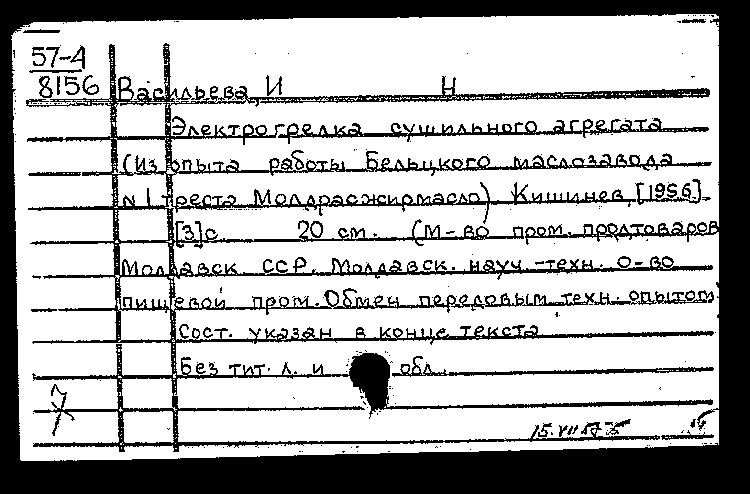 57-4
8156
Васильева, И Н
Электрогрелка сушильного агрегата
(Из опыта работы Бельцкого маслозавода
№ 1 треста Молдрасжирмасло) Кишинев, [1956]
[3]с. 20 см. (М-во пром. продтоваров
Молдавск. ССР. Молдавск. науч.-техн. о-во
пищевой пром. Обмен передовым техн. опытом
Сост. указан в конце текста
Без тит. л. и обл.